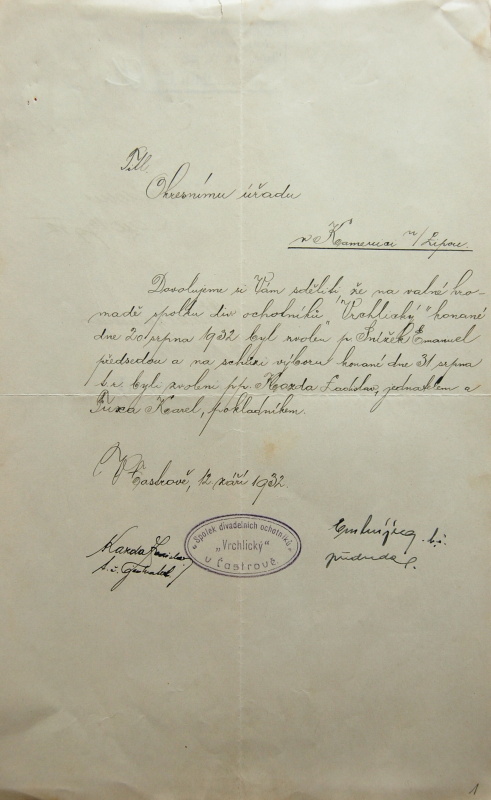 Okresnímu úřadu
v Kamenici n/Lipou.
Dovolujeme si Vám sděliti, že na valné hro-
madě spolku div. ochotníků "Vrchlický" konané
dne 20 srpna 1932 byl zvolen p. Snížek Emanuel
předsedou a na schůzi výboru konané dne 31 srpna
t.r. byli zvoleni pp. Kazda Ladislav, jednatelem a
Karel, pokladníkem.
V Častrově, 12 září 1932.
Spolek divadelních ochotníků
"Vrchlický"
v Častrově.
Kazda
t.č. jednatel
t.č.
předseda
1